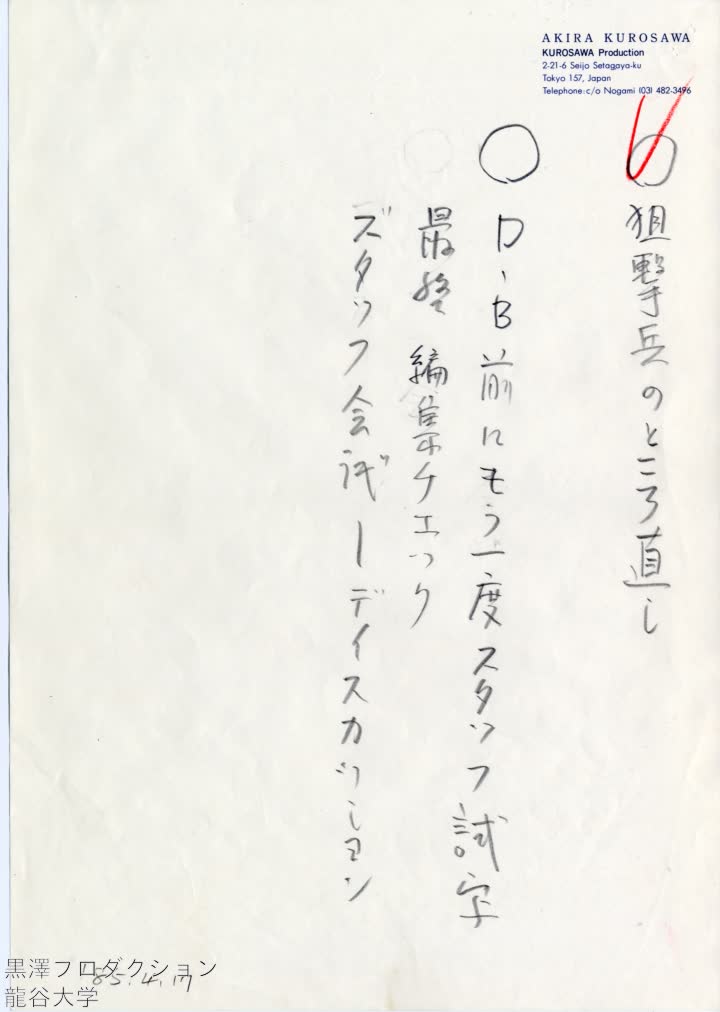 AKIRA KUROSAWA
KUROSAWA Production
2-21-6 Seijo Setagaya-ku
Tokyo 157, Japan
Telephone:c/o Nogami (03) 482-3496
○狙撃兵のところ直し
○D・B前にもう一度スタッフ試写
最終編集チエック
スタッフ会議ーデイスカツシヨン
'85.4.17
黒澤プロダクション
龍谷大学